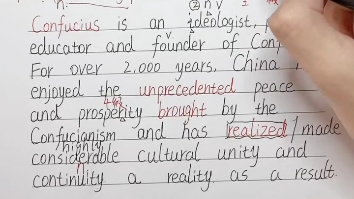 n. ② n v
Confucius is an ideologist,
educator and founder of Con
v
For over 2,000 years, China
enjoyed the unprecedented peace
and prosperity brought by the
Confucianism and has realized / made
highly
considerable cultural unity and
n
continuity a reality as a result.